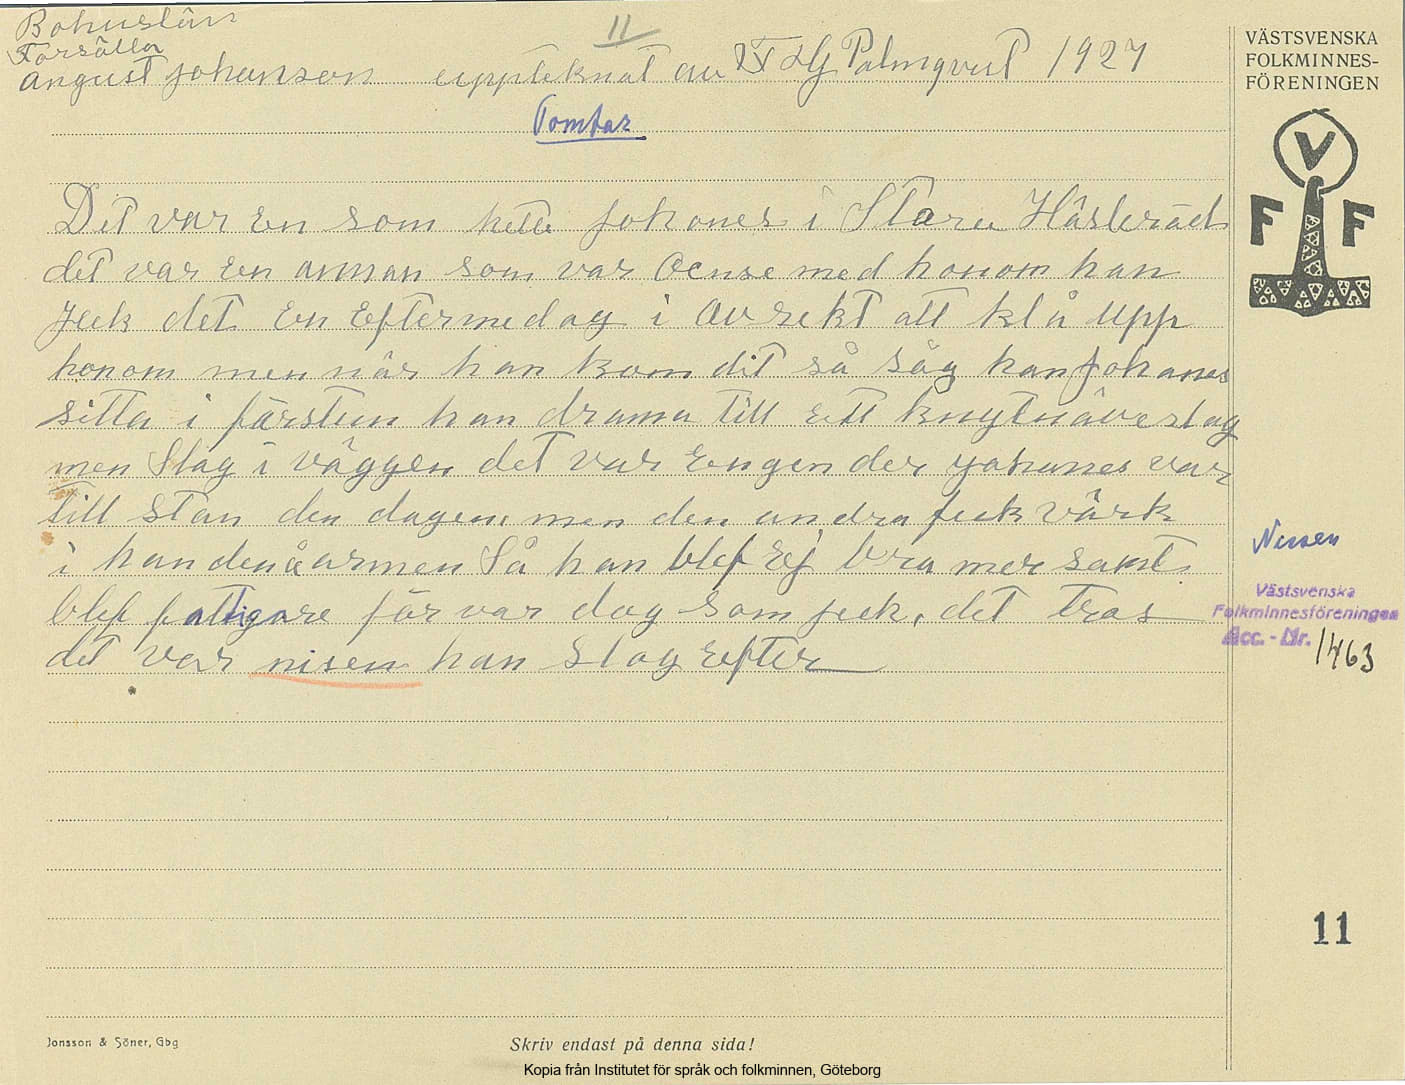 Bohuslän
Forsälla
August Johanson uppteknat av HG Palmqvist 1927
11
Tomtar
Dit var en som hette Johanes i Stora Häsleröd
det var en annan som var Oense med honom han
feck det en Eftermedag i avsekt att klå upp
honom men när han kom dit så såg han Johanes
sitta i farstun han drama till ett knytnäveslag
men slag i väggen det var Engen der yohanes var
till stan den dagen, men den andra feck värk
i handen å armen Så han blef Ej bra mer samt
blef fattigare för var dag som feck, det tros
det var nisen han slog Efter
VÄSTSVENSKA
FOLKMINNES-
FÖRENINGEN
V
F F
Nissen
Västsvenska
Folkminnesföreningen
Acc. - Nr. 1463
11
Jonsson & Söner, Gbg
Skriv endast på denna sida!
Kopia från Institutet för språk och folkminnen, Göteborg